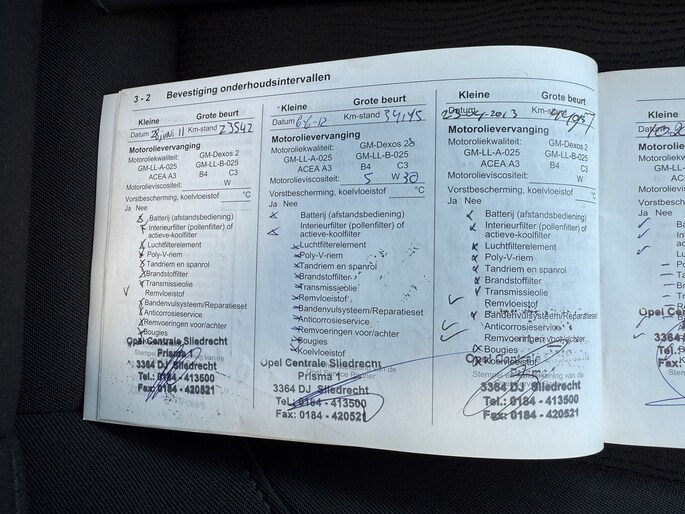 3 - 2 Bevestiging onderhoudsintervallen
Kleine Grote beurt
Datum 11 Km-stand 23542
Motorolievervanging
Motoroliekwaliteit: GM-Dexos 2
GM-LL-A-025 GM-LL-B-025
ACEA A3 B4 C3
Motorolieviscositeit: W
Vorstbescherming, koelvloeistof °C
Ja Nee
Batterij (afstandsbediening)
Interieurfilter (pollenfilter) of
actieve-koolfilter
Luchtfilterelement
Poly-V-riem
Tandriem en spanrol
Brandstoffilter
Transmissieolie
Remvloeistof
Bandenvulsysteem/Reparatieset
Anticorrosieservice
Remvoeringen voor/achter
Bougies
Opel Centrale Sliedrecht
Prisma 1
3364 DJ Sliedrecht
Tel.: 0184 - 413500
Fax: 0184 - 420521
Kleine Grote beurt
Datum 6-6-12 Km-stand 34145
Motorolievervanging
Motoroliekwaliteit: GM-Dexos 2
GM-LL-A-025 GM-LL-B-025
ACEA A3 B4 C3
Motorolieviscositeit: 5 W 30
Vorstbescherming, koelvloeistof °C
Ja Nee
Batterij (afstandsbediening)
Interieurfilter (pollenfilter) of
actieve-koolfilter
Luchtfilterelement
Poly-V-riem
Tandriem en spanrol
Brandstoffilter
Transmissieolie
Remvloeistof
Bandenvulsysteem/Reparatieset
Anticorrosieservice
Remvoeringen voor/achter
Bougies
Koelvloeistof
Opel Centrale Sliedrecht
Prisma 1
3364 DJ Sliedrecht
Tel.: 0184 - 413500
Fax: 0184 - 420521
Kleine Grote beurt
Datum Km-stand
Motorolievervanging
Motoroliekwaliteit: GM-Dexos 2
GM-LL-A-025 GM-LL-B-025
ACEA A3 B4 C3
Motorolieviscositeit: W
Vorstbescherming, koelvloeistof °C
Ja Nee
Batterij (afstandsbediening)
Interieurfilter (pollenfilter) of
actieve-koolfilter
Luchtfilterelement
Poly-V-riem
Tandriem en spanrol
Brandstoffilter
Transmissieolie
Remvloeistof
Bandenvulsysteem/Reparatieset
Anticorrosieservice
Remvoeringen voor/achter
Bougies
Koelvloeistof
Opel Centrale
3364 DJ Sliedrecht
Tel.: 0184 - 413500
Fax: 0184 - 420521
Kleine
Motorolie
Motoroliekwa
GM-LL-A-0
ACEA
Motorolievis
Vorstbesch
Ja Nee
Opel Ce
3364